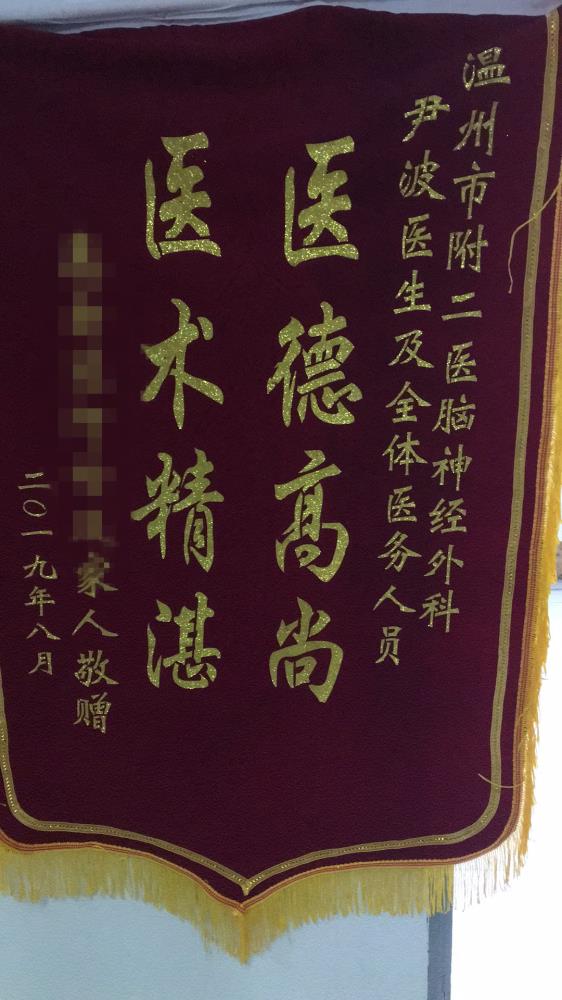 温州市附二医脑神经外科
尹波医生及全体医务人员
医德高尚
医术精湛
家人敬赠
二〇一九年八月